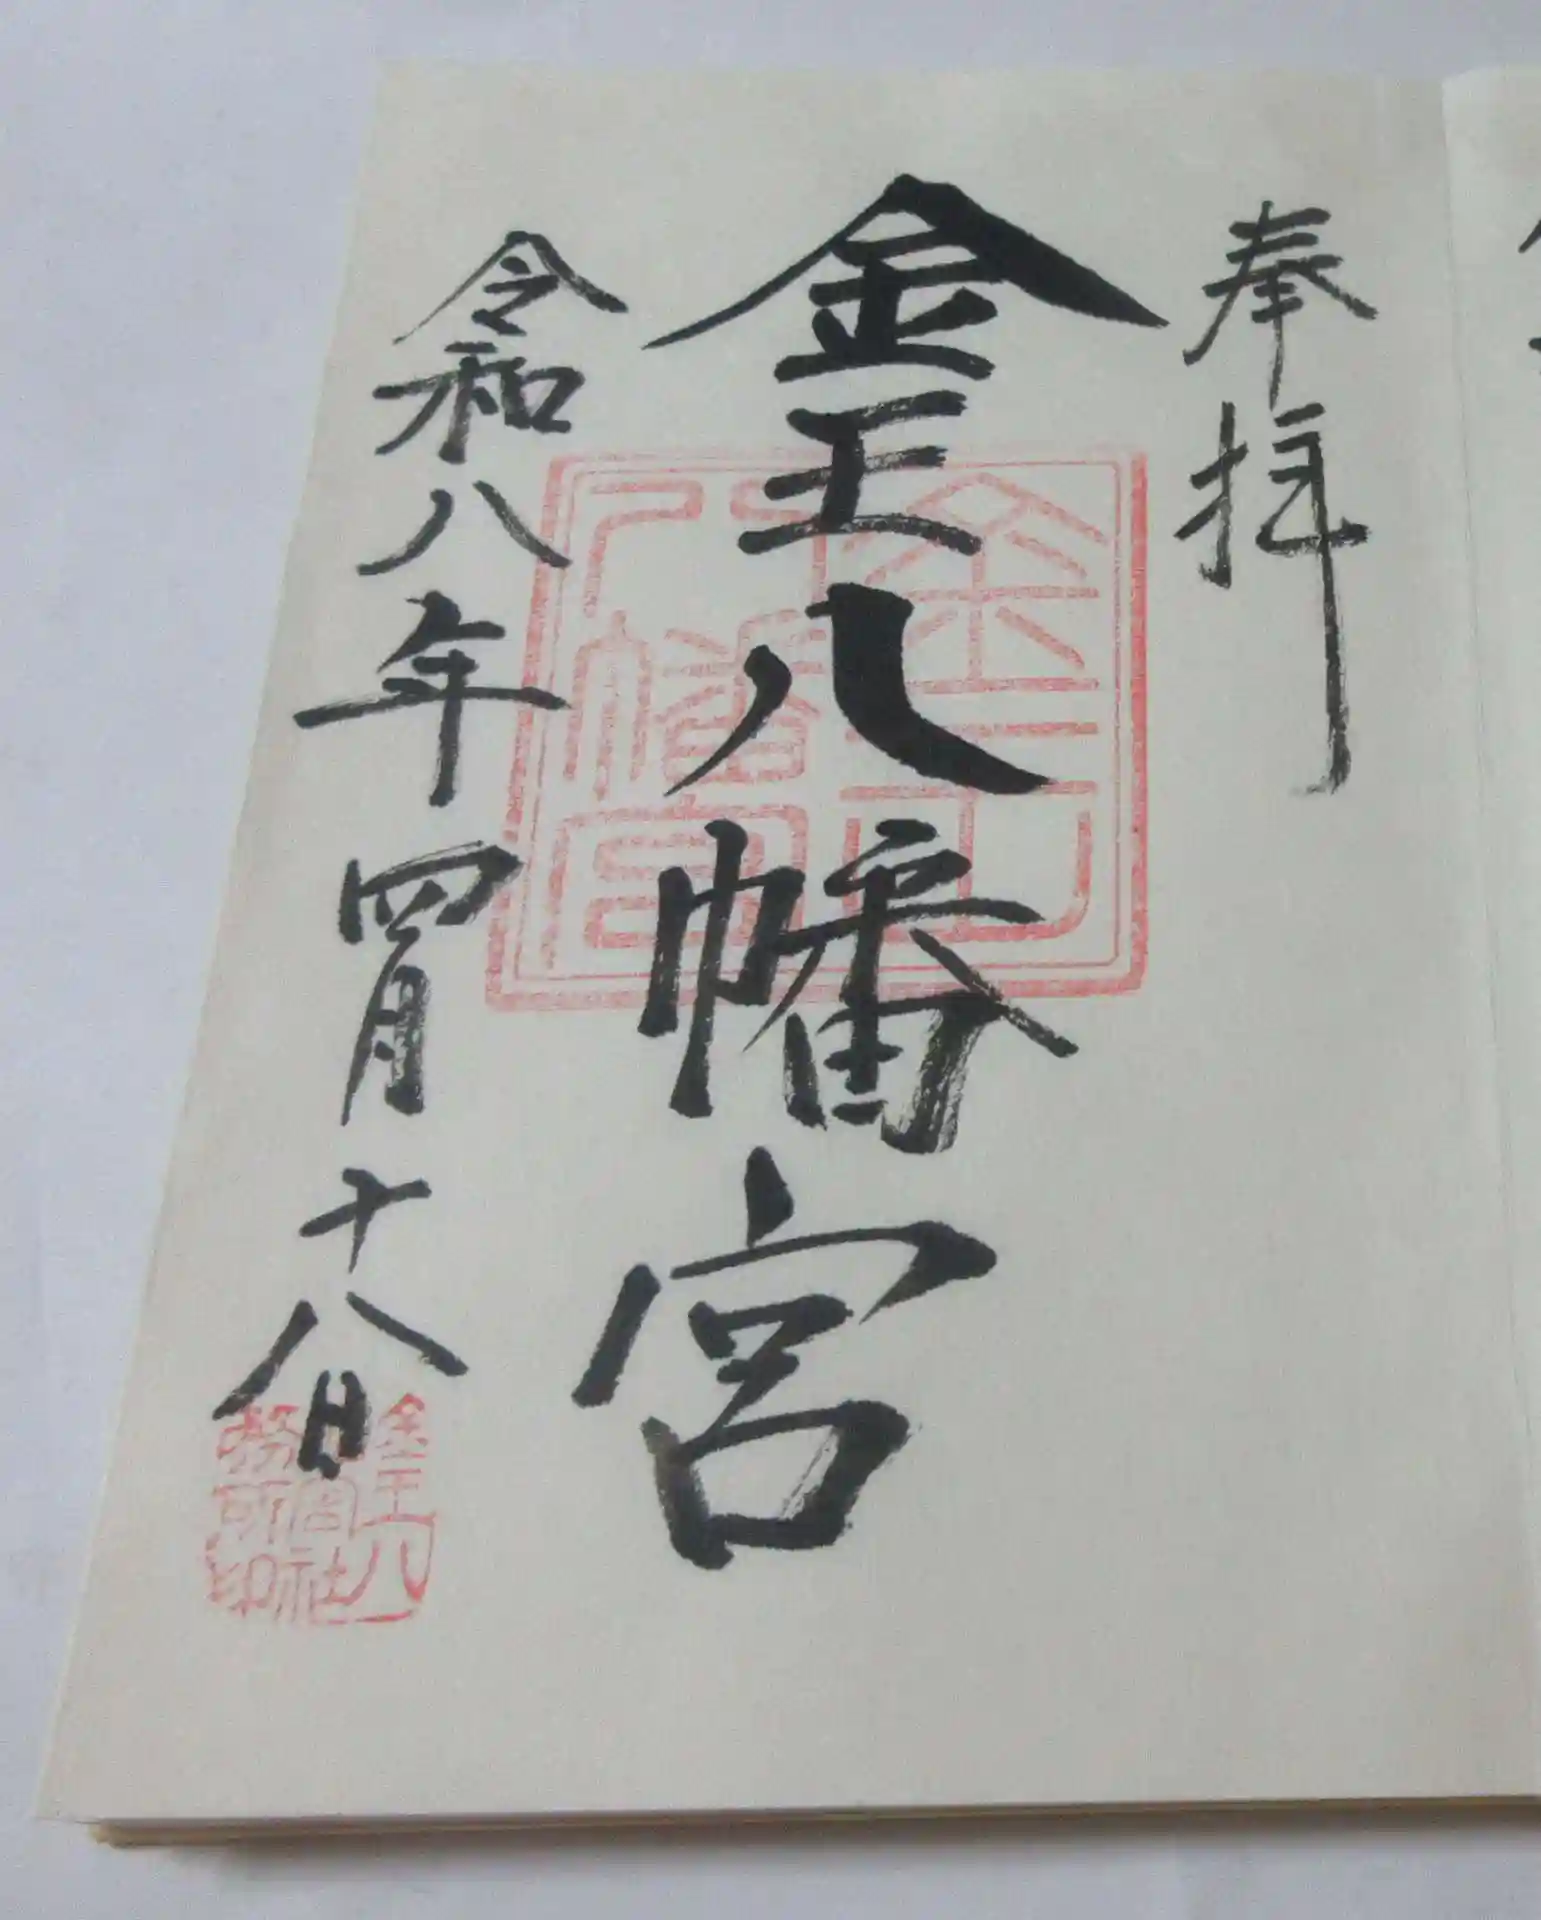 奉拝
金王八幡宮
令和八年四月十八日
金王八幡宮
金王八
宮社
務所印